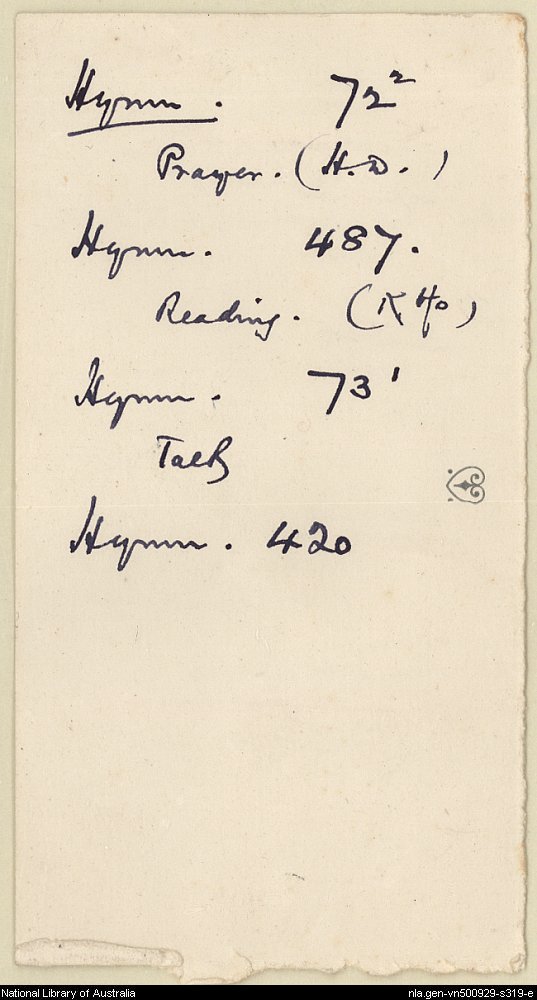 Hymn. 72²
Prayer. (H.D.)
Hymn. 487.
Reading.
Hymn. 73¹
Talk
Hymn. 420
National Library of Australia
nla.gen-vn500929-s319-e